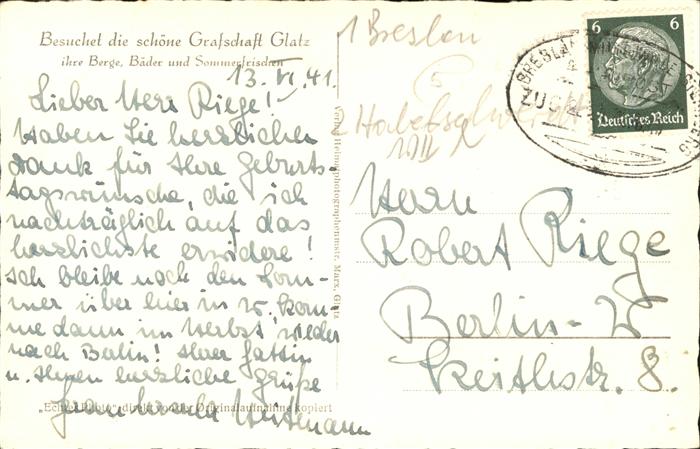 Besuchet die schöne Grafschaft Glatz
ihre Berge, Bäder und Sommerfrischen
13. VI. 41.
Lieber Herr Riege!
Haben Sie herzlichen
Dank für Ihre Geburts-
tagswünsche, die ich
nachträglich auf das
herzlichste erwidere!
Ich bleibe noch den Som-
mer über hier in W. Kom-
me dann im Herbst wieder
nach Berlin! Ihrer Gattin
u. Ihnen herzliche Grüße
Heitmann
„Echtes Photo“ direkt von der Originalaufnahme kopiert
Marx, Glatz
1 Breslau
2 Habelschwerdt
Herrn
Robert Riege
Berlin-W
Keithstr. 8.
BRESLAU
ZUG
6 6
Deutsches Reich